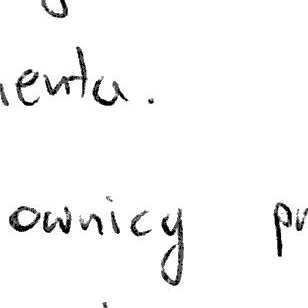 ienta.
ownicy pr